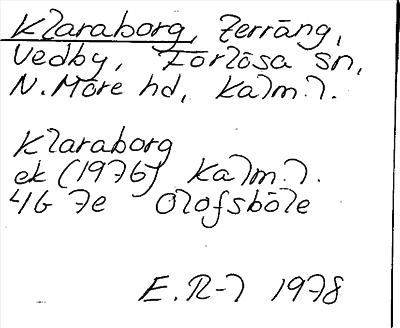 Klaraborg, Terräng,
Vedby, Förlösa sn,
N. Möre hd, Kalm. l.
Klaraborg
ek (1976) Kalm. l.
4G 7e Olofsböle
E. R-l 1978